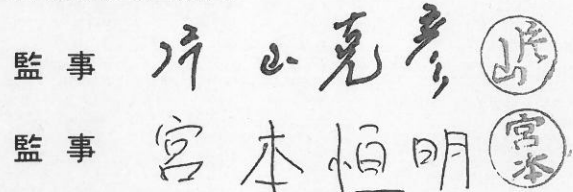 監事 片山克彦 片山
監事 宮本恒明 宮本